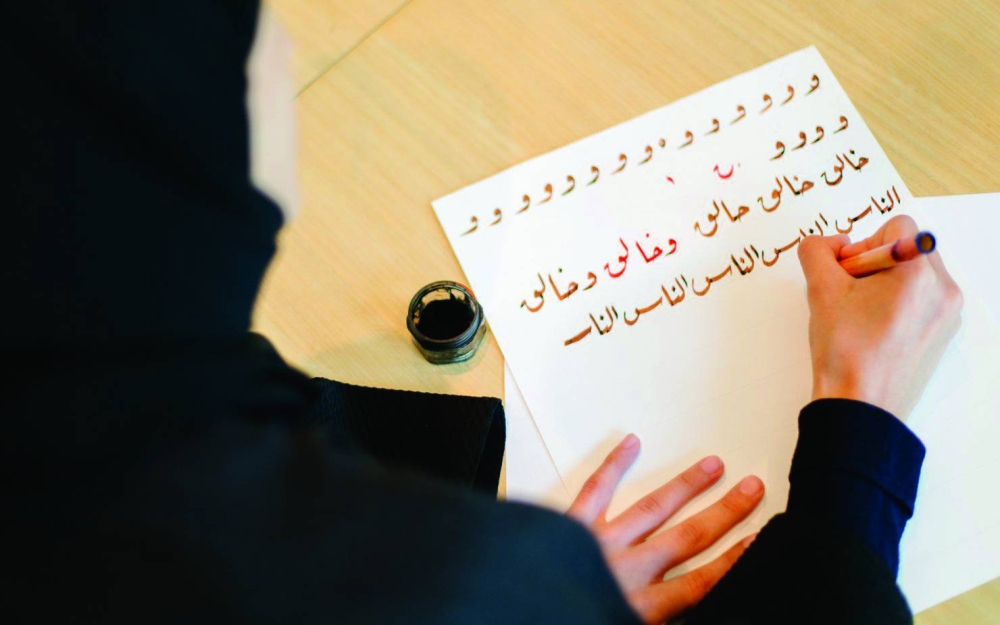 و و و و و و و و و و و و و و
و و و و
خالق خالق حالق وخالق وخالق
الناس الناس الناس الناس الناس